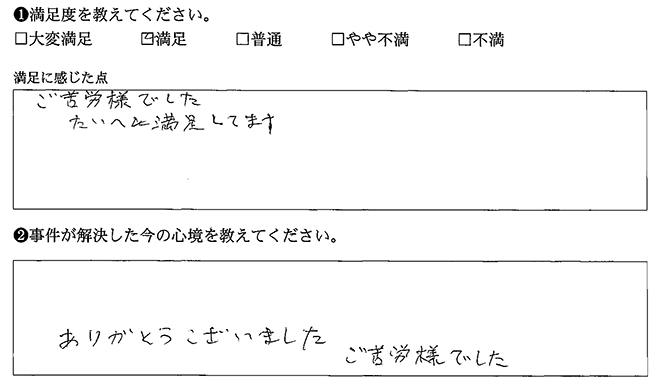 ❶満足度を教えてください。
□大変満足 ☑満足 □普通 □やや不満 □不満
満足に感じた点
ご苦労様でした
たいへん満足してます
❷事件が解決した今の心境を教えてください。
ありがとうございました
ご苦労様でした